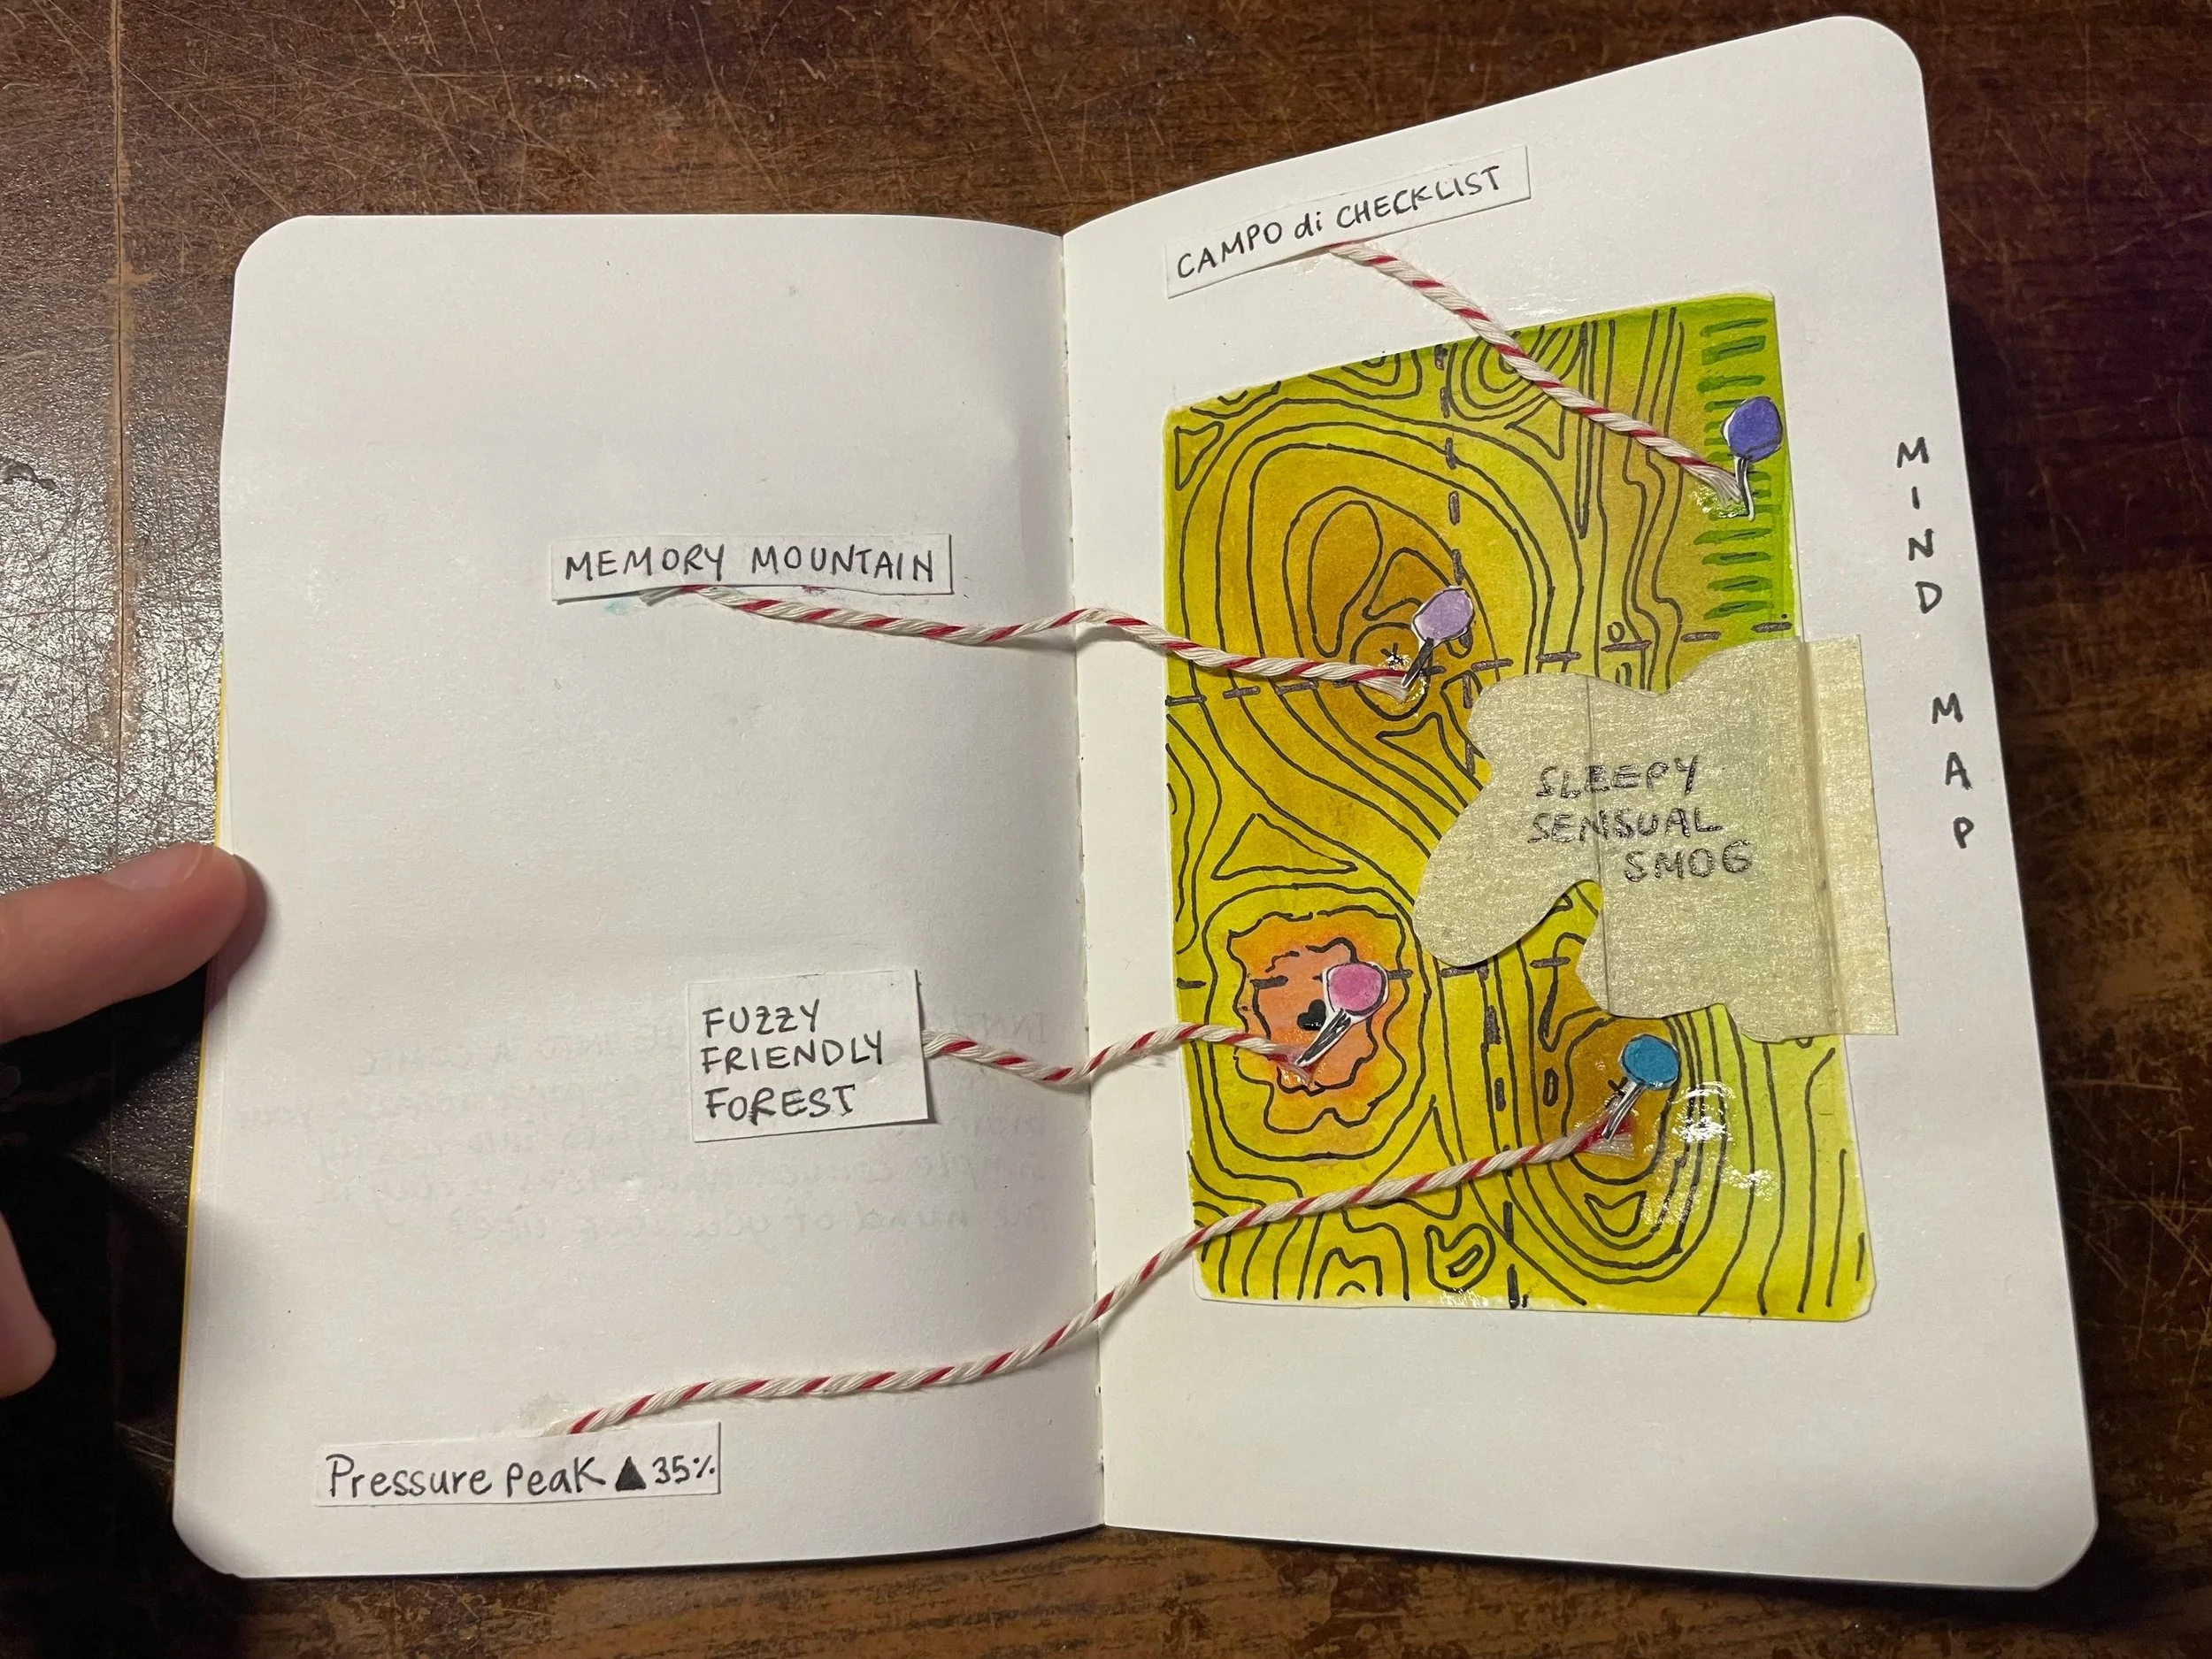 CAMPO di CHECKLIST
MEMORY MOUNTAIN
FUZZY
FRIENDLY
FOREST
Pressure peak ▲35%
SLEEPY
SENSUAL
SMOG
MIND MAP